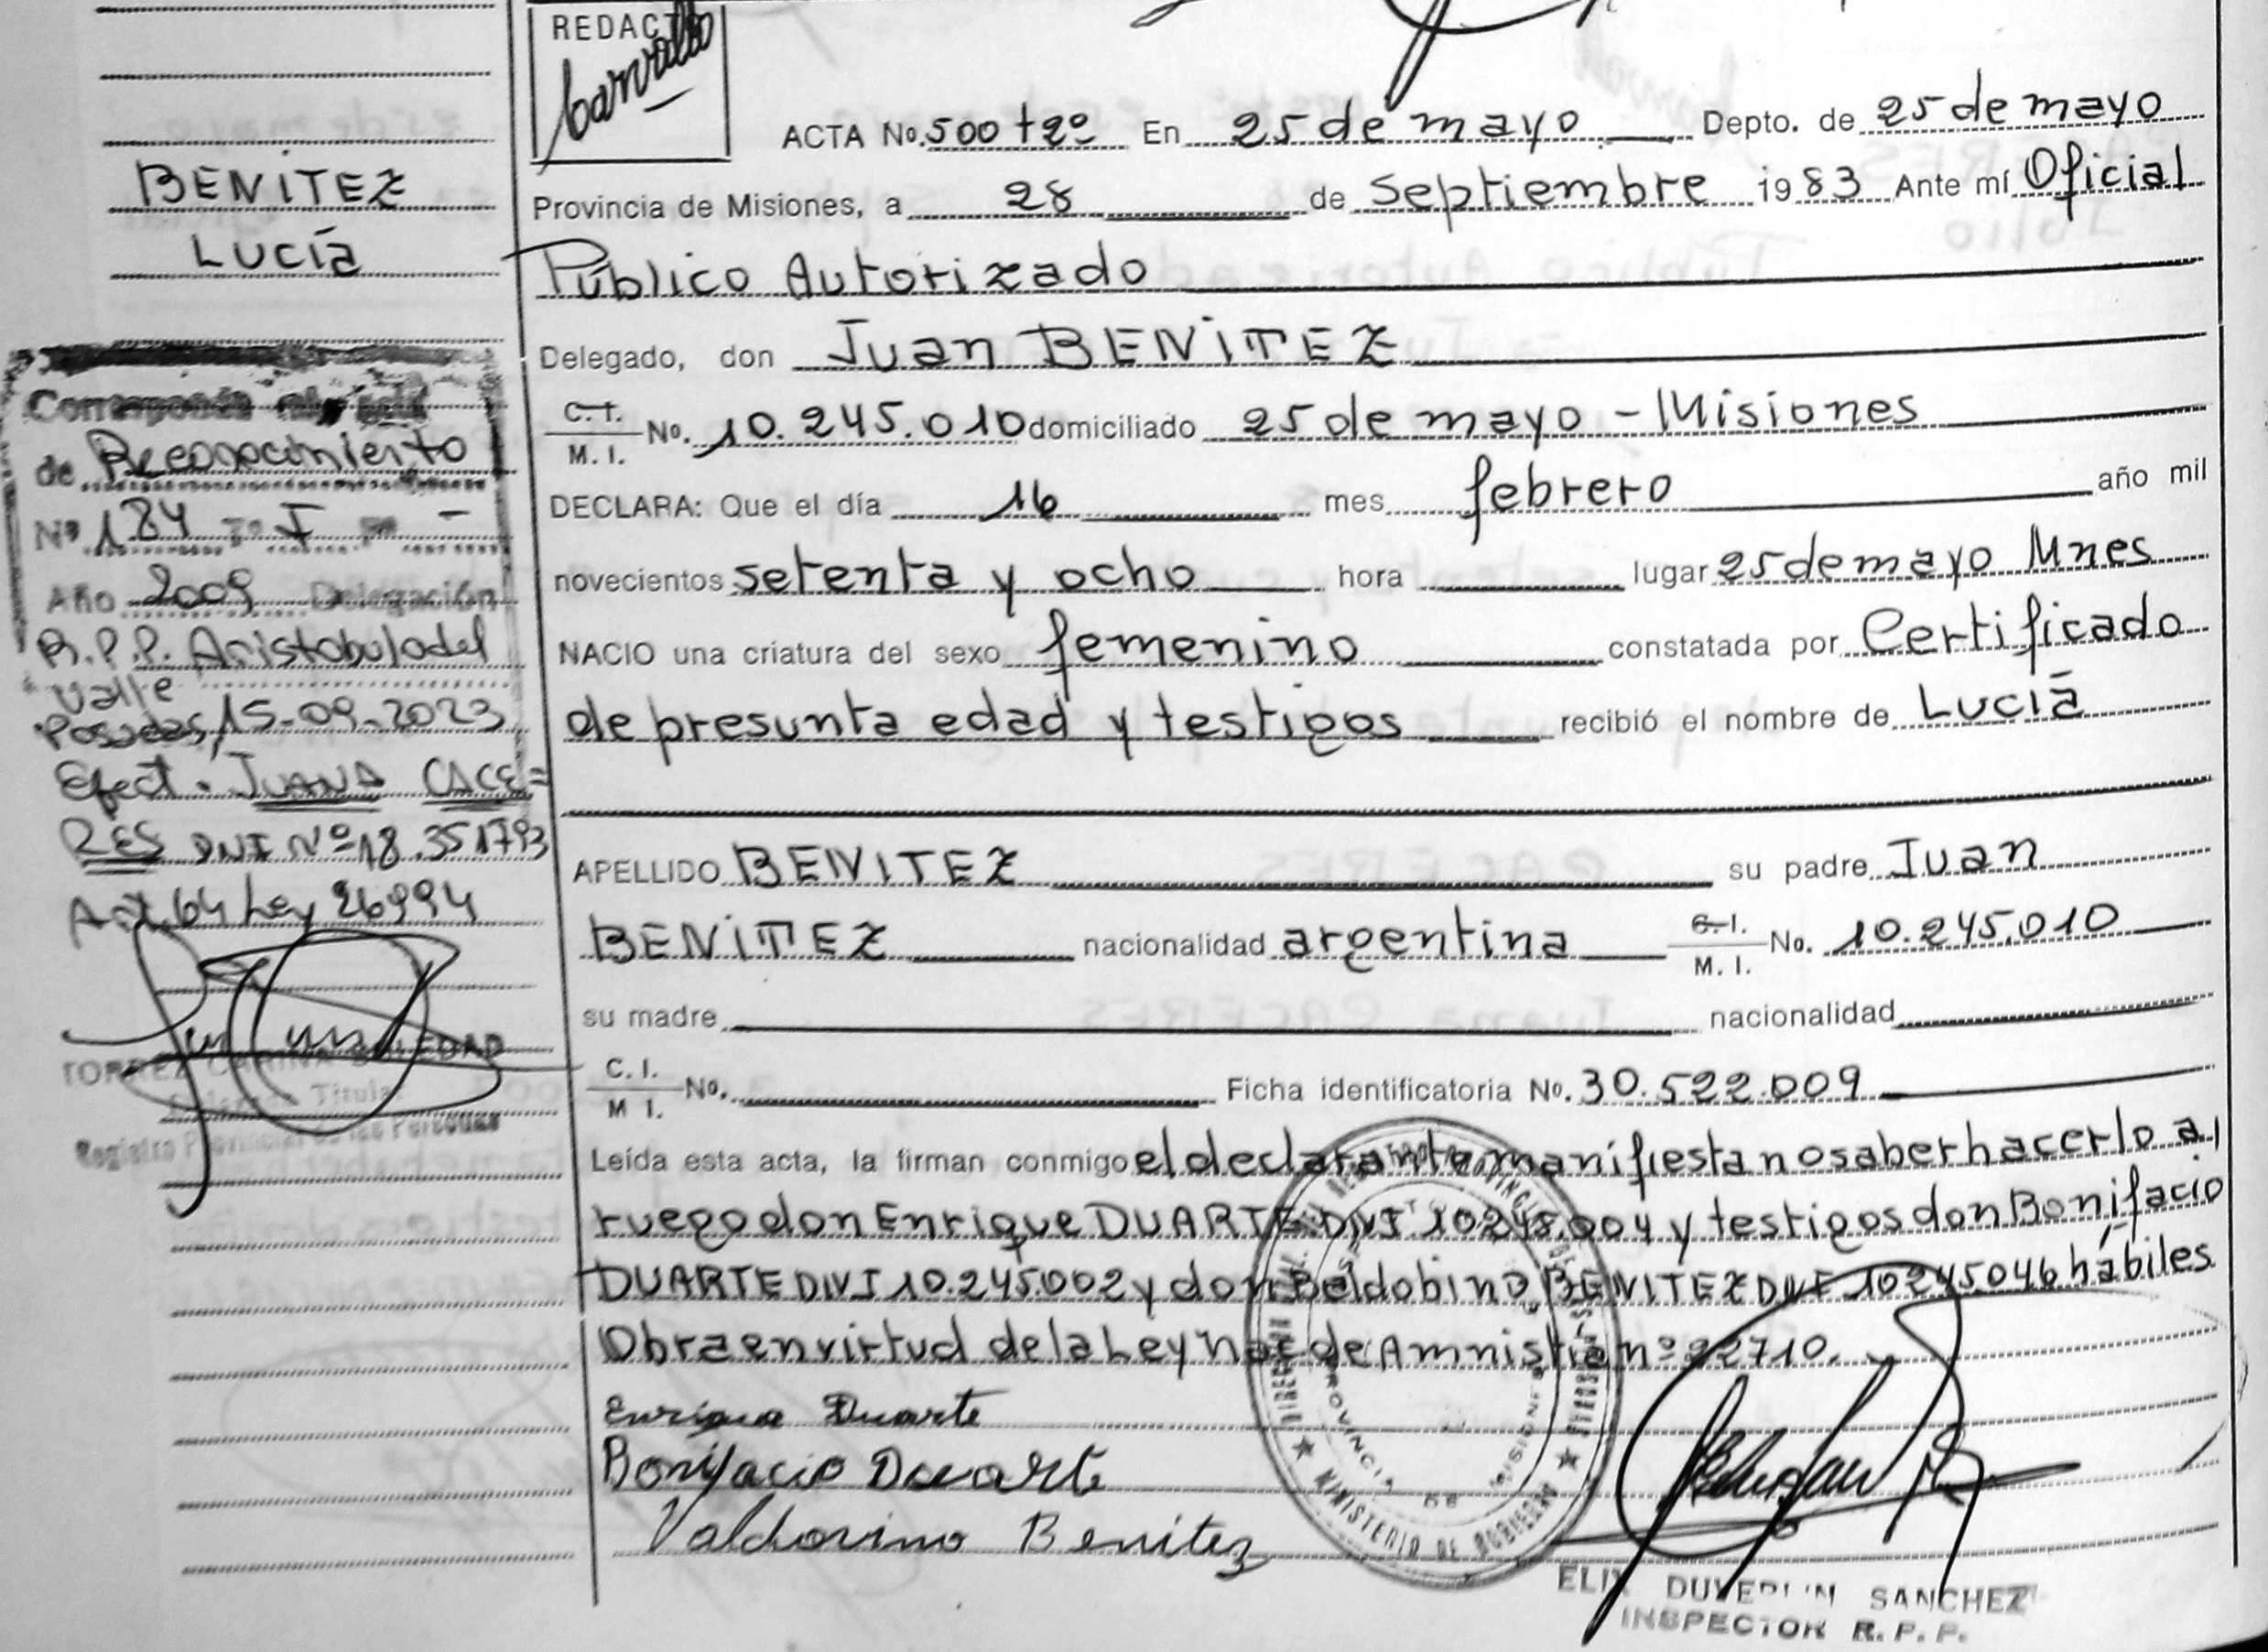 BENITEZ
Lucía
Corresponde
de Reconocimiento
Nº 184 Tº I Fº -
Año 2009 Delegación
R.P.P. Aristobulo del
Valle
Posadas, 15-09-2023
Efect. JUANA CACE=
RES DNI Nº 18.351793
Art. 64 Ley 26994
TORREZ CARINA SOLEDAD
Delegada Titular
Registro Provincial de las Personas
REDACTO
ACTA No. 500 tº 2º En 25 de mayo Depto. de 25 de mayo
Provincia de Misiones, a 28 de septiembre 19 83 Ante mí Oficial
Público Autorizado
Delegado, don Juan BENITEZ
C. I. / M. I. No. 10.245.010 domiciliado 25 de mayo - Misiones
DECLARA: Que el día 16 mes febrero año mil
novecientos setenta y ocho hora lugar 25 de mayo Mnes
NACIO una criatura del sexo femenino constatada por Certificado
de presunta edad y testigos recibió el nombre de Lucía
APELLIDO BENITEZ su padre Juan
BENITEZ nacionalidad argentina C. I. / M. I. No. 10.245.010
su madre nacionalidad
C. I. / M I. No. Ficha identificatoria No. 30.522.009
Leída esta acta, la firman conmigo el declarante manifiesta no saber hacerlo a
ruego don Enrique DUARTE DNI 10.245.004 y testigos don Bonifacio
DUARTE DNI 10.245.002 y don Beldobino BENITEZ DNI 10.245.046 hábiles
Obra en virtud de la Ley Nac de Amnistía nº 22710.
Enrique Duarte
Bonifacio Duarte
Valdovino Benitez
MINISTERIO DE GOBIERNO
PROVINCIA DE MISIONES
SANCHEZ
INSPECTOR R. P. P.